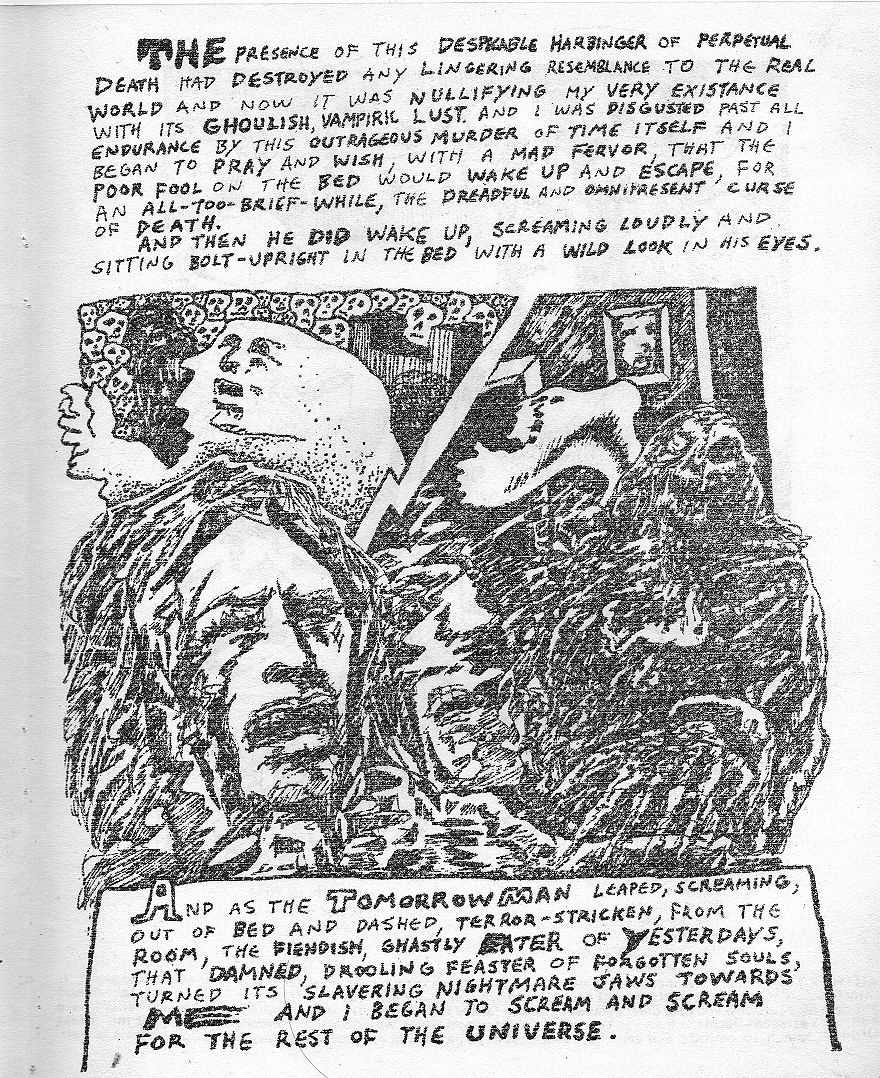 THE PRESENCE OF THIS DESPICABLE HARBINGER OF PERPETUAL
DEATH HAD DESTROYED ANY LINGERING RESEMBLANCE TO THE REAL
WORLD AND NOW IT WAS NULLIFYING MY VERY EXISTANCE
WITH ITS GHOULISH, VAMPIRIC LUST. AND I WAS DISGUSTED PAST ALL
ENDURANCE BY THIS OUTRAGEOUS MURDER OF TIME ITSELF AND I
BEGAN TO PRAY AND WISH, WITH A MAD FERVOR, THAT THE
POOR FOOL ON THE BED WOULD WAKE UP AND ESCAPE, FOR
AN ALL-TOO-BRIEF-WHILE, THE DREADFUL AND OMNIPRESENT CURSE
OF DEATH.
AND THEN HE DID WAKE UP, SCREAMING LOUDLY AND
SITTING BOLT-UPRIGHT IN THE BED WITH A WILD LOOK IN HIS EYES.
AND AS THE TOMORROWMAN LEAPED, SCREAMING,
OUT OF BED AND DASHED, TERROR-STRICKEN, FROM THE
ROOM, THE FIENDISH, GHASTLY EATER OF YESTERDAYS,
THAT DAMNED, DROOLING FEASTER OF FORGOTTEN SOULS,
TURNED ITS SLAVERING NIGHTMARE JAWS TOWARDS
ME AND I BEGAN TO SCREAM AND SCREAM
FOR THE REST OF THE UNIVERSE.